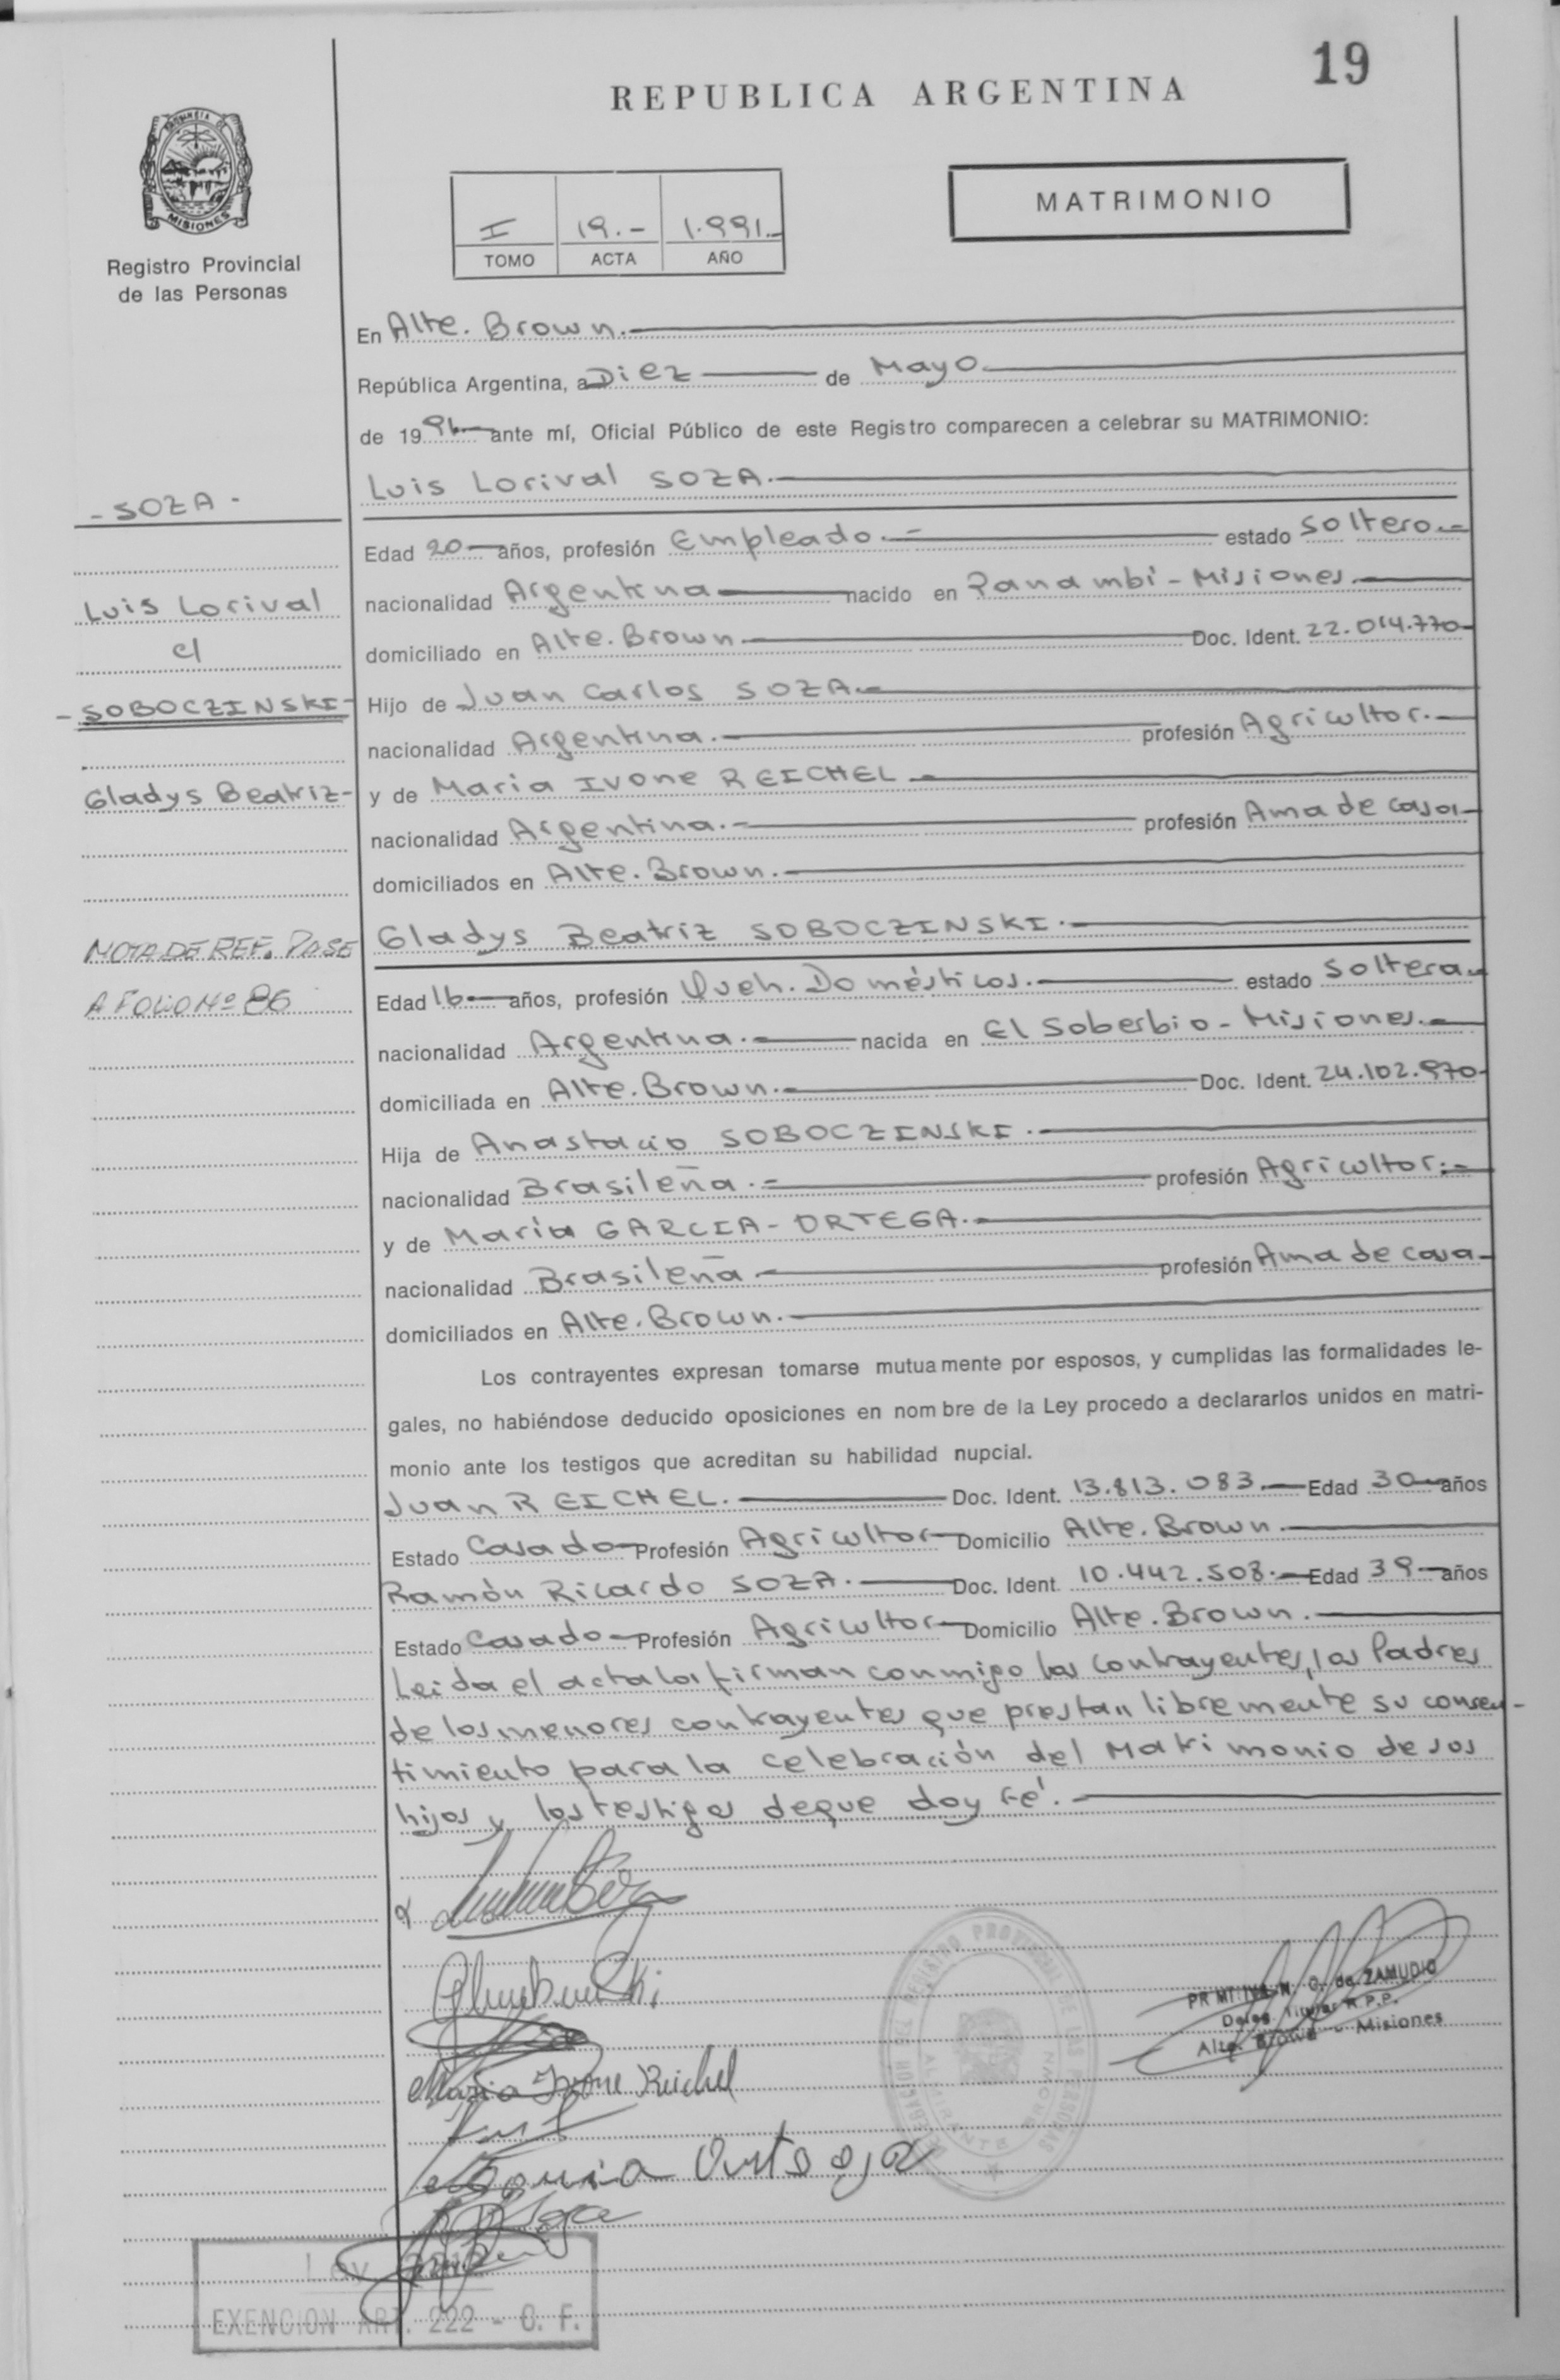 19
REPUBLICA ARGENTINA
PROVINCIA DE
MISIONES
Registro Provincial
de las Personas
I 19.- 1.991.-
TOMO ACTA AÑO
MATRIMONIO
En Alte. Brown.
República Argentina, a Diez de Mayo
de 19 91 ante mí, Oficial Público de este Registro comparecen a celebrar su MATRIMONIO:
- SOZA -
Luis Lorival
c/
- SOBOCZINSKI-
Gladys Beatriz-
NOTA DE REF. PASE
A FOLIO Nº 86
Luis Lorival SOZA.
Edad 20 años, profesión Empleado.- estado Soltero.-
nacionalidad Argentina nacido en Panambí - Misiones.
domiciliado en Alte. Brown Doc. Ident. 22.014.770
Hijo de Juan Carlos SOZA.-
nacionalidad Argentina.- profesión Agricultor.-
y de Maria Ivone REICHEL
nacionalidad Argentina.- profesión Ama de casa
domiciliados en Alte. Brown.
Gladys Beatriz SOBOCZINSKI.
Edad 16 años, profesión Queh. Domésticos. estado Soltera
nacionalidad Argentina. nacida en El Soberbio - Misiones.-
domiciliada en Alte. Brown. Doc. Ident. 24.102.970
Hija de Anastacio SOBOCZINSKI.
nacionalidad Brasileña.- profesión Agricultor.-
y de Maria GARCIA - ORTEGA.
nacionalidad Brasileña profesión Ama de casa
domiciliados en Alte. Brown.
Los contrayentes expresan tomarse mutuamente por esposos, y cumplidas las formalidades le-
gales, no habiéndose deducido oposiciones en nombre de la Ley procedo a declararlos unidos en matri-
monio ante los testigos que acreditan su habilidad nupcial.
Juan REICHEL. Doc. Ident. 13.813.083. Edad 30 años
Estado Casado Profesión Agricultor Domicilio Alte. Brown.
Ramón Ricardo SOZA. Doc. Ident. 10.442.508. Edad 39 años
Estado Casado Profesión Agricultor Domicilio Alte. Brown.
Leida el acta la firman conmigo los contrayentes, los Padres
de los menores contrayentes que prestan libremente su consen-
timiento para la celebración del Matrimonio de sus
hijos y los testigos de que doy Fé.
PRIMITIVA N. O. de ZAMUDIO
Deleg. Titular R.P.P.
Alte. Brown - Misiones
DELEGACION DEL REGISTRO PROVINCIAL DE LAS PERSONAS
ALMIRANTE BROWN
Maria Ivone Reichel
Ortega
Ley
EXENCION ART. 222 - C. F.